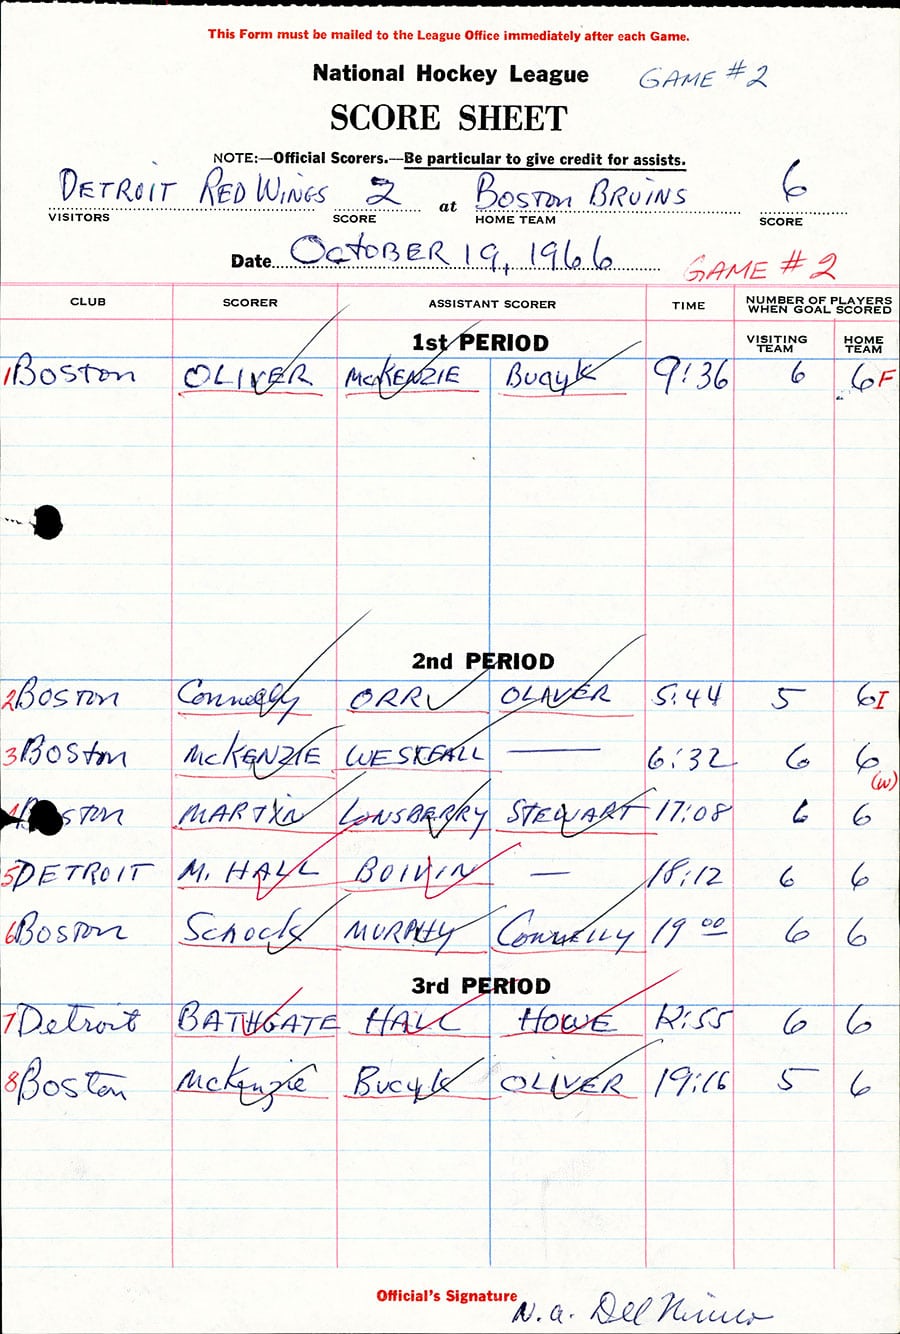 This Form must be mailed to the League Office immediately after each Game.
National Hockey League GAME #2
SCORE SHEET
NOTE:—Official Scorers.—Be particular to give credit for assists.
DETROIT RED WINGS 2 at BOSTON BRUINS 6
VISITORS SCORE HOME TEAM SCORE
Date OCTOBER 19, 1966 GAME #2
CLUB SCORER ASSISTANT SCORER TIME NUMBER OF PLAYERS WHEN GOAL SCORED
1st PERIOD VISITING TEAM HOME TEAM
1 BOSTON OLIVER McKENZIE Bucyk 9:36 6 6 F
2nd PERIOD
2 BOSTON Connelly ORR OLIVER 5:44 5 6 I
3 BOSTON McKENZIE WESTFALL — 6:32 6 6
(W)
4 Boston MARTIN LONSBERRY STEWART 17:08 6 6
5 DETROIT M. HALL BOIVIN — 18:12 6 6
6 BOSTON Schock MURPHY CONNELLY 19 00 6 6
3rd PERIOD
7 Detroit BATHGATE HALL HOWE 12:55 6 6
8 Boston McKenzie Bucyk OLIVER 19:16 5 6
Official's Signature N. a.